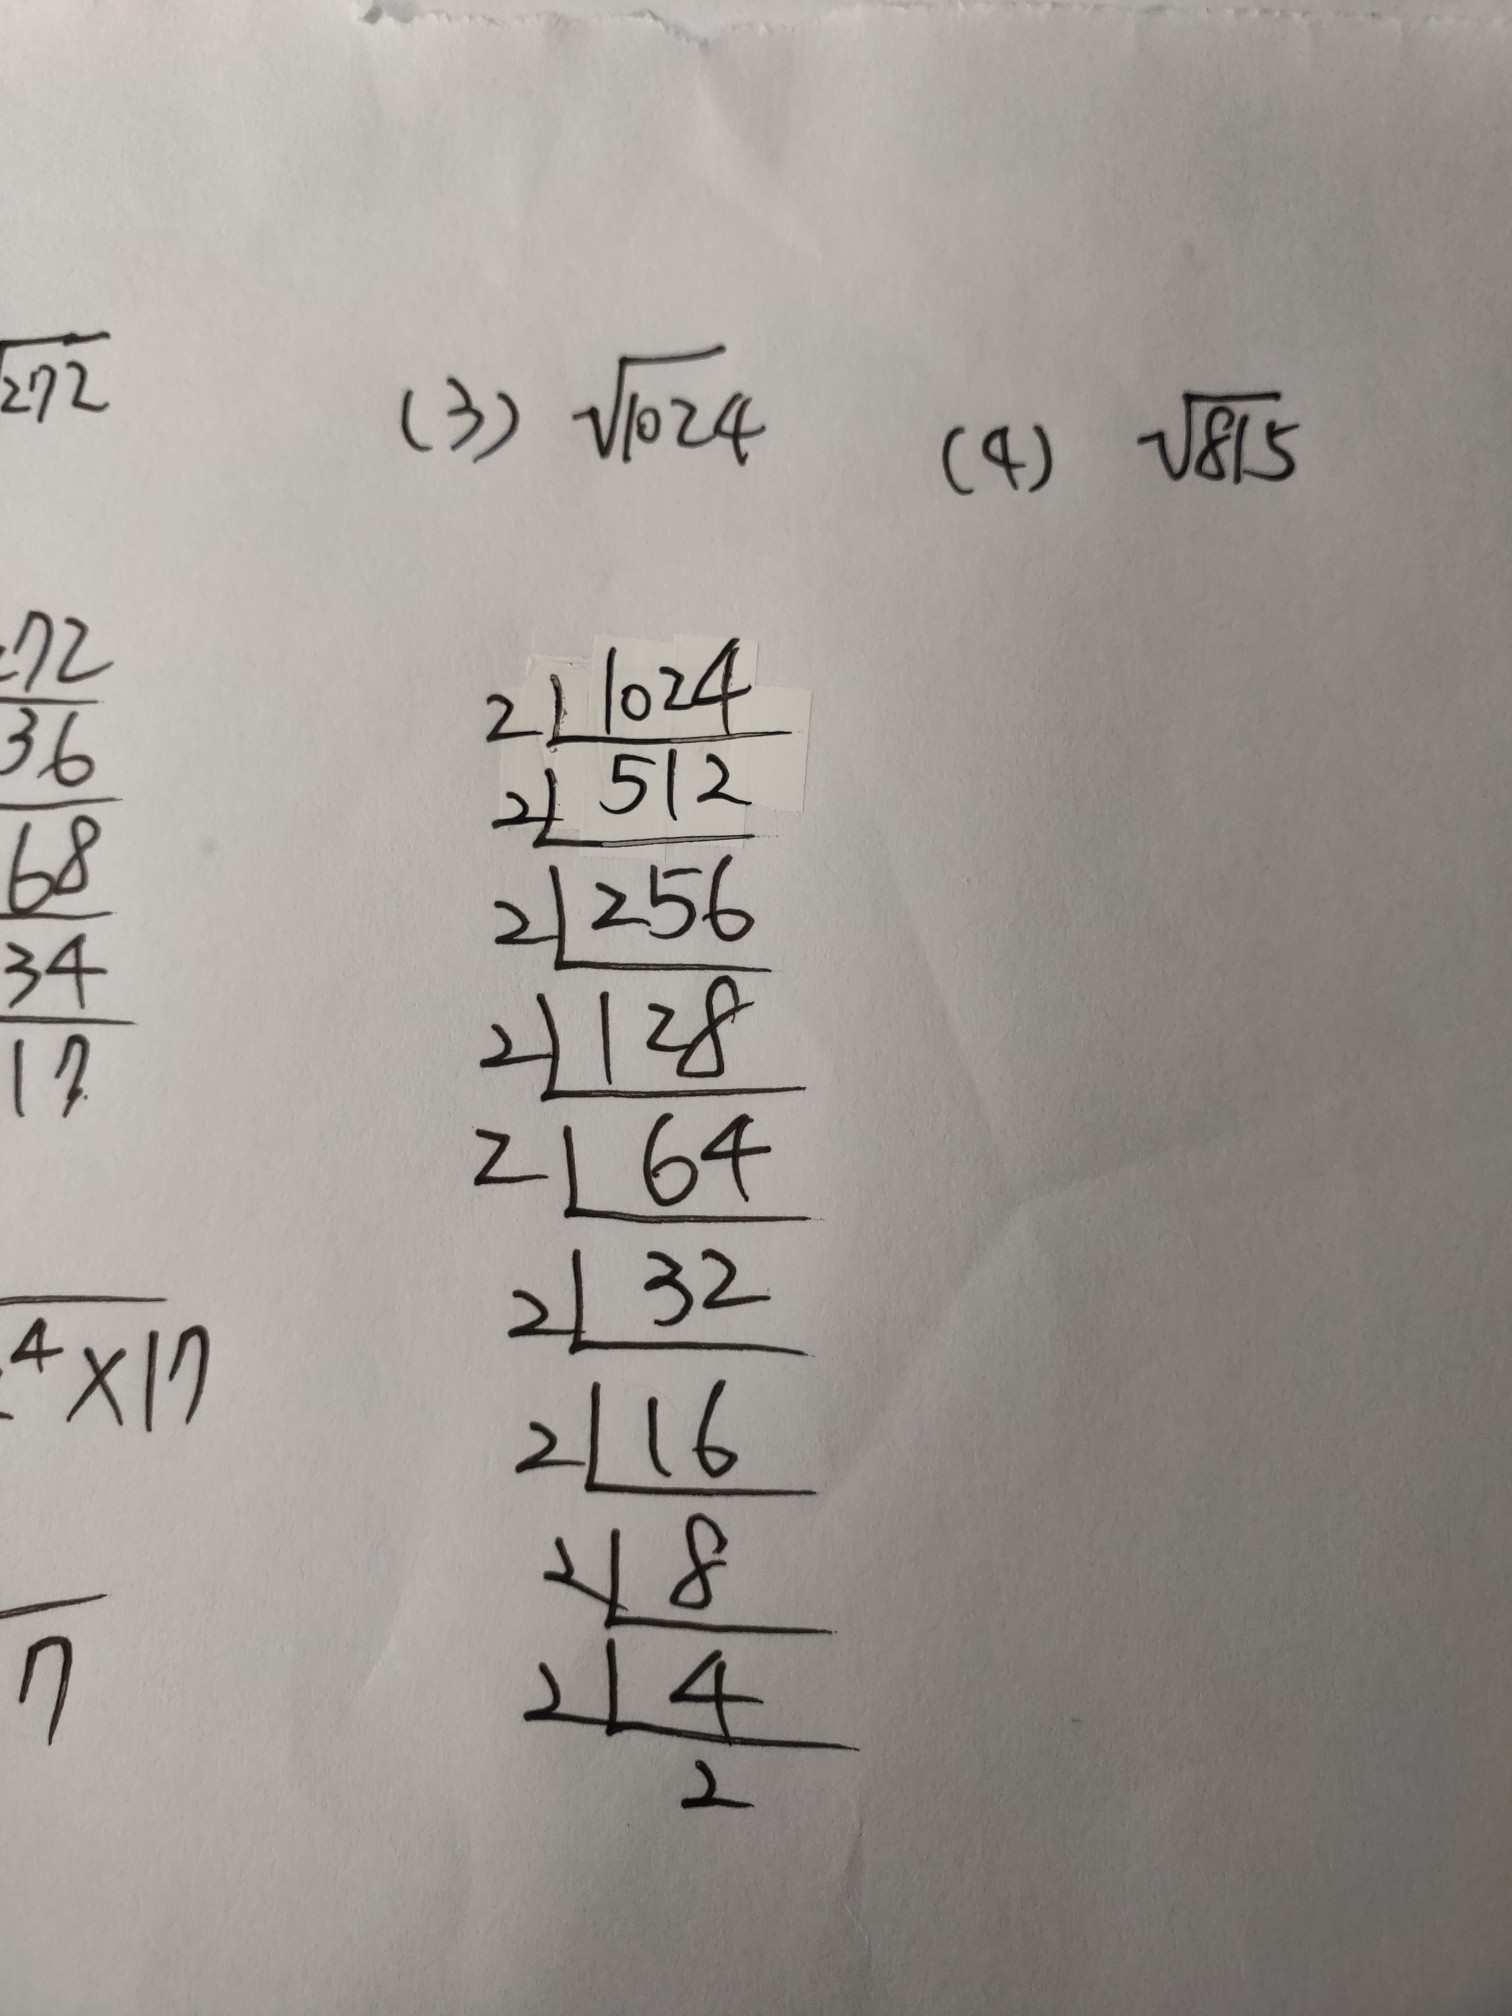 √272
(3) √1024
(4) √815
272
36
68
34
17
4 × 17
7
2 | 1024
2 | 512
2 | 256
2 | 128
2 | 64
2 | 32
2 | 16
2 | 8
2 | 4
2